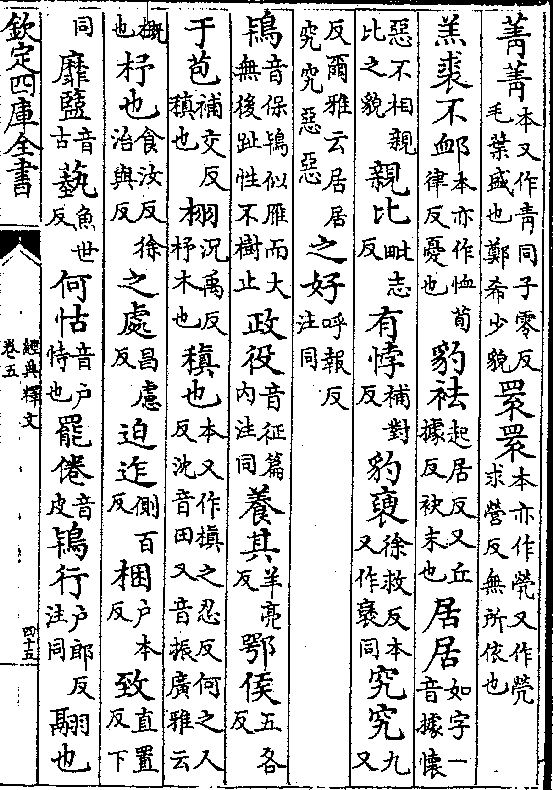 菁菁本又作青同子零反毛葉盛也鄭希少貌睘睘本亦作煢又作㷀求營反無所依也
羔裘不䘏本亦作恤荀律反憂也豹袪起居反又丘據反袂末也居居如字一音據懷
惡不相親比之貌親比毗志反有悖補對反豹褎徐救反本又作褏同究究九又
反爾雅云居居究究惡惡之好呼報反注同
鴇音保鴇似雁而大無後趾性不樹止政役音征篇内注同養其羊亮反鄂侯五各反
于苞補交反稹也栩況禹反杼木也稹也本又作槙之忍反何之人反沈音田又音振廣雅云
概也杼也食汝反徐治與反之處昌慮反迫迮側百反梱户本反致直置反下
同靡盬音古蓺魚世反何怙音户恃也罷倦音皮鴇行户郎反注同翮也
欽定四庫全書
經典釋文
卷五
四十五